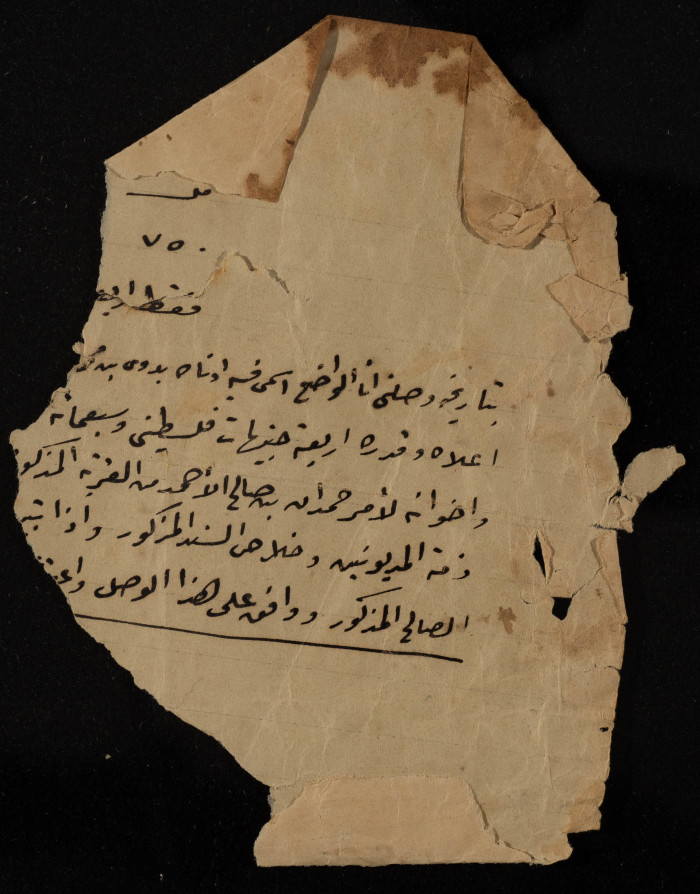 مل
٧٥٠
فقط اربع
بتاريخه وصلني انا الواضع اسمي فيه ادناه بدوي بن
اعلاه وقدره اربعة جنيهات فلسطيني وسبعمائة
واخوانه لأمر حمدان بن صالح الأحمد من القرية المذكو
ذمة المديونين وخلاص السند المذكور واذا
الصالح المذكور ووافق على هذا الوصل